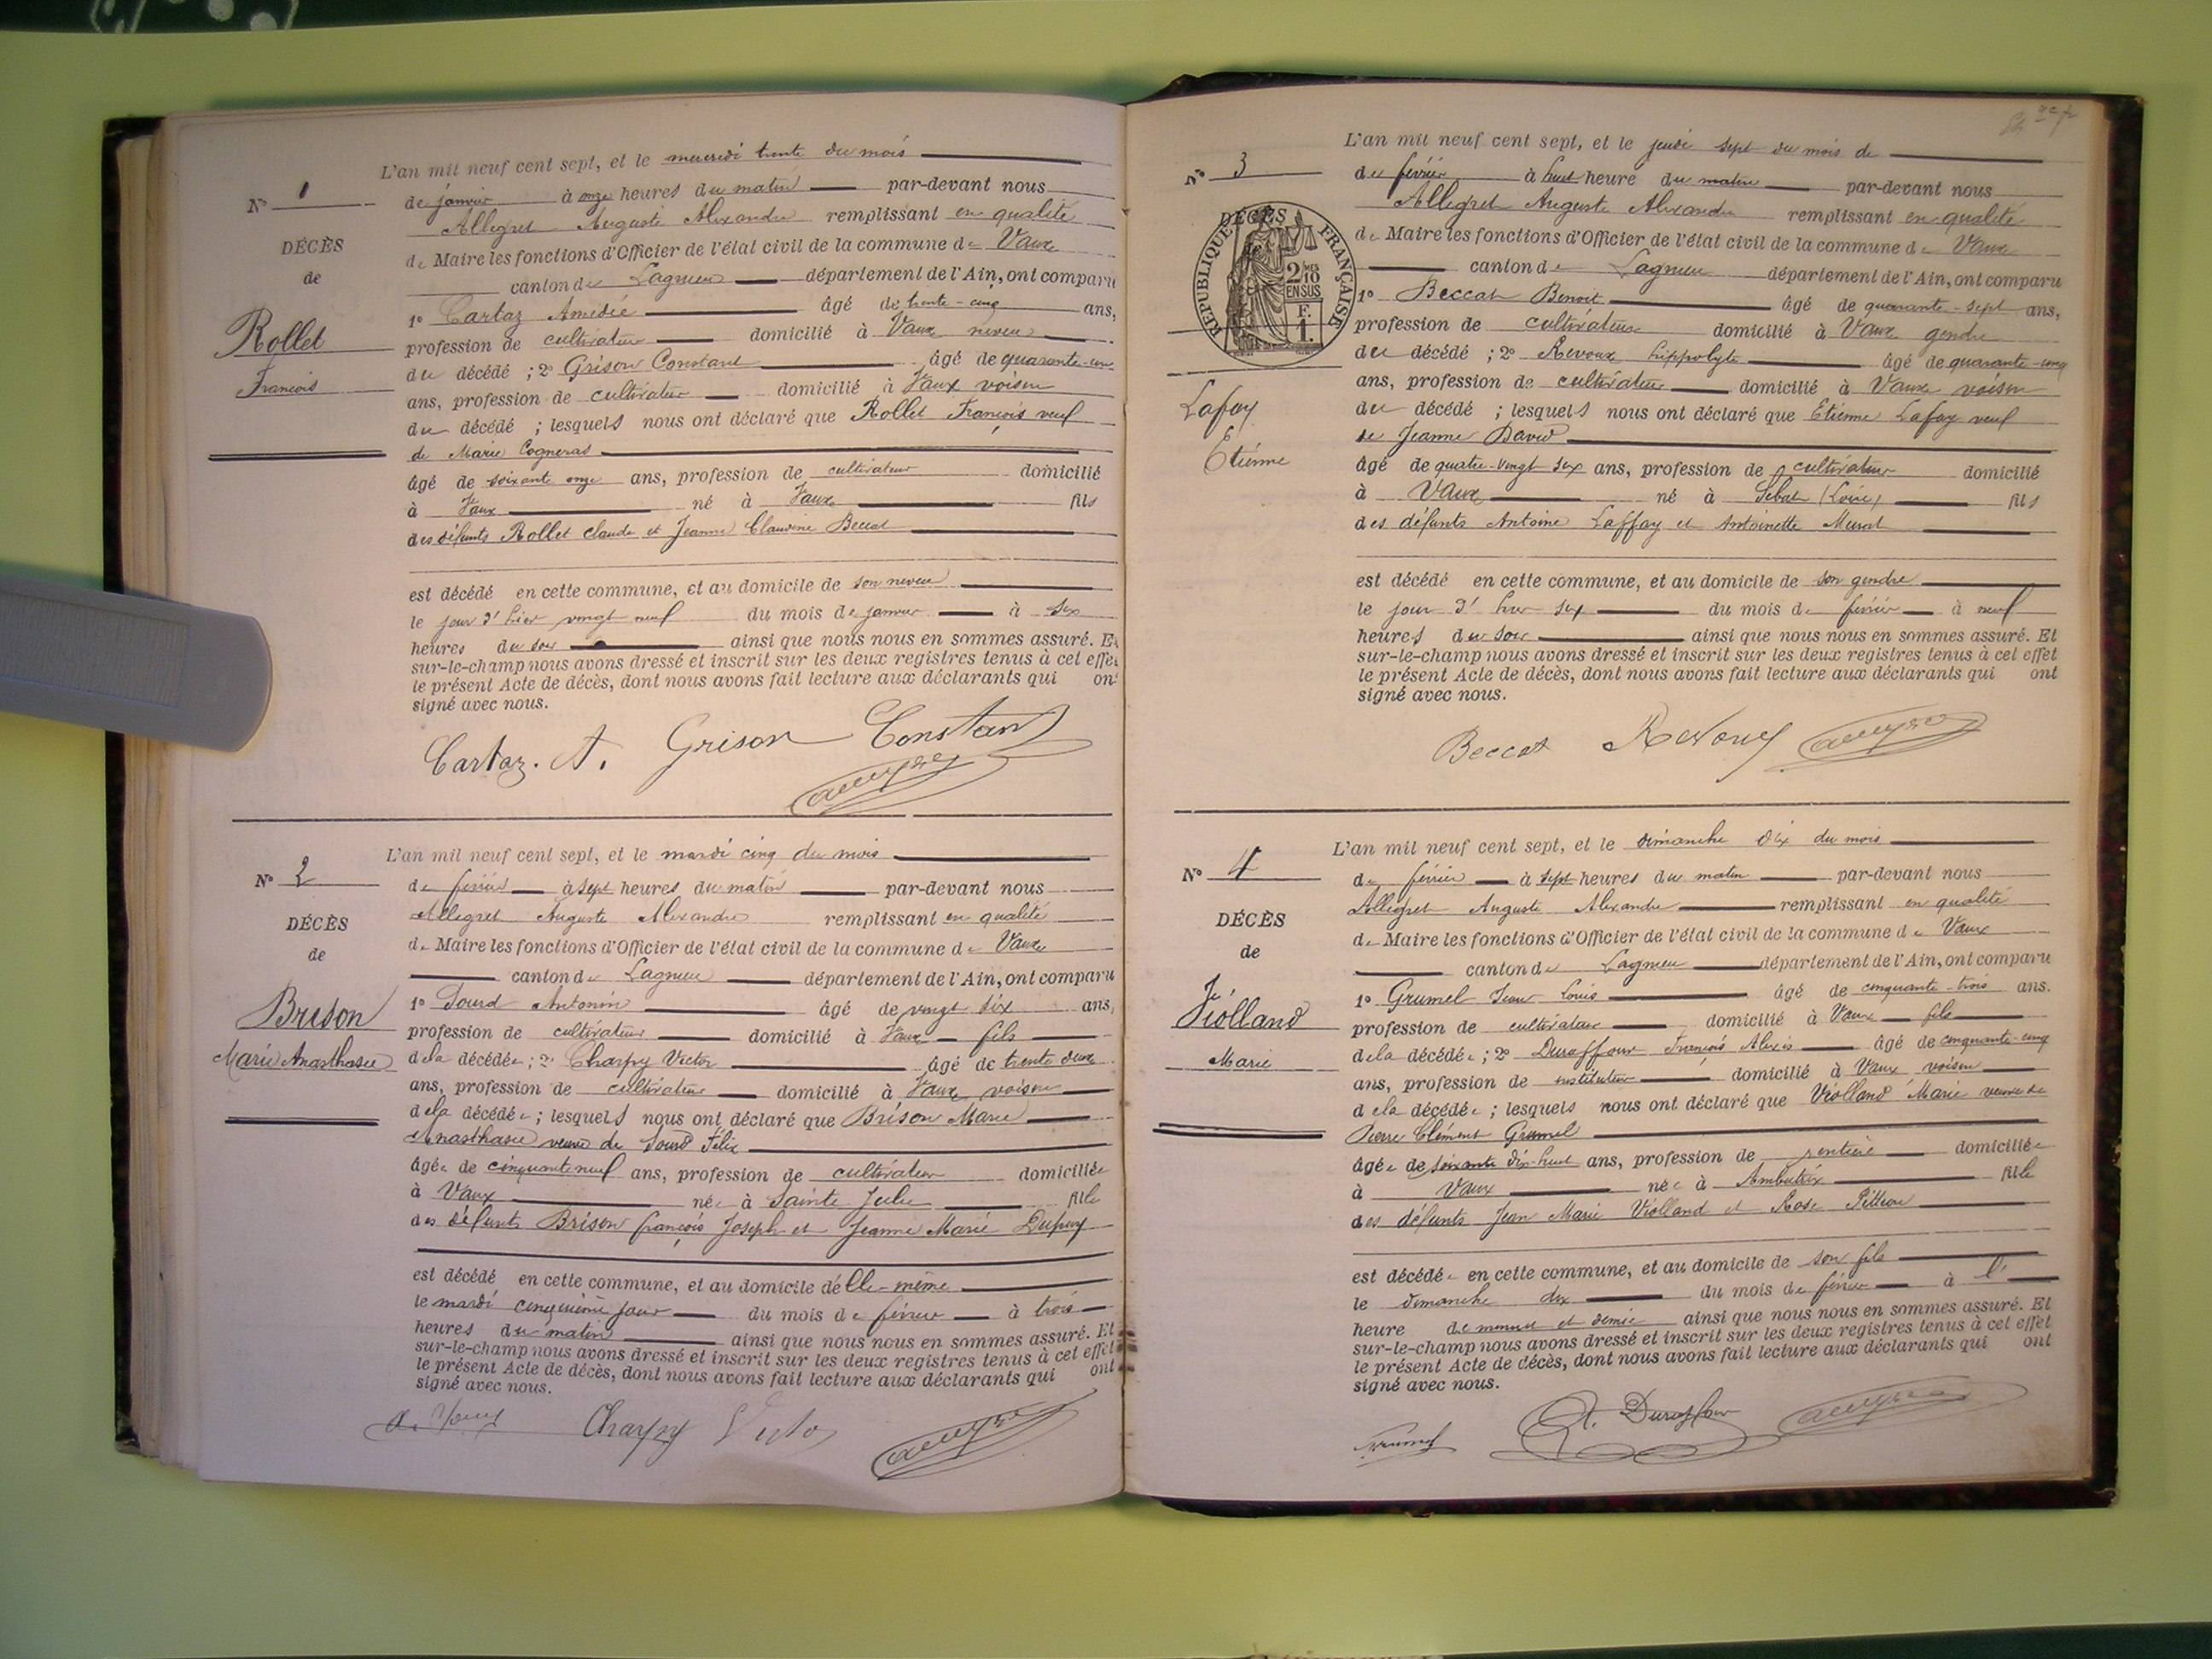 N° 1
DÉCÈS
de
Rollet
François
L'an mil neuf cent sept, et le mercredi trente du mois
de janvier à onze heures du matin par-devant nous
Allegret Auguste Alexandre remplissant en qualité
de Maire les fonctions d'Officier de l'état civil de la commune de Vaux
canton de Lagnieu département de l'Ain, ont comparu
1° Cartaz Amédée âgé de trente-cinq ans,
profession de cultivateur domicilié à Vaux neveu
du décédé ; 2° Grison Constant âgé de quarante-un
ans, profession de cultivateur domicilié à Vaux voisin
du décédé ; lesquels nous ont déclaré que Rollet François veuf
de Marie Cogneras
âgé de soixante onze ans, profession de cultivateur domicilié
à Vaux né à Vaux fils
des défunts Rollet Claude et Jeanne Claudine Beccat
est décédé en cette commune, et au domicile de son neveu
le jour d'hier vingt neuf du mois de janvier à six
heures du soir ainsi que nous nous en sommes assuré. Et
sur-le-champ nous avons dressé et inscrit sur les deux registres tenus à cet effet
le présent Acte de décès, dont nous avons fait lecture aux déclarants qui ont
signé avec nous.
Cartaz. A. Grison Constant
N° 2
DÉCÈS
de
Brison
Marie Anasthasie
L'an mil neuf cent sept, et le mardi cinq du mois
de février à sept heures du matin par-devant nous
Allegret Auguste Alexandre remplissant en qualité
de Maire les fonctions d'Officier de l'état civil de la commune de Vaux
canton de Lagnieu département de l'Ain, ont comparu
1° Sourd Antonin âgé de vingt six ans,
profession de cultivateur domicilié à Vaux fils
de la décédée ; 2° Charpy Victor âgé de trente deux
ans, profession de cultivateur domicilié à Vaux voisin
de la décédée ; lesquels nous ont déclaré que Brison Marie
Anasthasie veuve de Sourd Félix
âgée de cinquante neuf ans, profession de cultivateur domiciliée
à Vaux née à Sainte Julie fille
des défunts Brison françois Joseph et Jeanne Marie Dupuy
est décédé en cette commune, et au domicile d'elle-même
le mardi cinquième jour du mois de février à trois
heures du matin ainsi que nous nous en sommes assuré. Et
sur-le-champ nous avons dressé et inscrit sur les deux registres tenus à cet effet
le présent Acte de décès, dont nous avons fait lecture aux déclarants qui ont
signé avec nous.
Charpy Victor
N° 3
RÉPUBLIQUE FRANÇAISE
DÉCÈS
2/10
EN SUS
F.
1.
Lafay
Etienne
L'an mil neuf cent sept, et le jeudi sept du mois de
de février à huit heure du matin par-devant nous
Allegret Auguste Alexandre remplissant en qualité
de Maire les fonctions d'Officier de l'état civil de la commune de Vaux
canton de Lagnieu département de l'Ain, ont comparu
1° Beccat Benoit âgé de quarante-sept ans,
profession de cultivateur domicilié à Vaux gendre
du décédé ; 2° Revoux hippolyte âgé de quarante-cinq
ans, profession de cultivateur domicilié à Vaux voisin
du décédé ; lesquels nous ont déclaré que Etienne Lafay veuf
de Jeanne David
âgé de quatre-vingt six ans, profession de cultivateur domicilié
à Vaux né à (Loire) fils
des défunts Antoine Laffay et Antoinette Murat
est décédé en cette commune, et au domicile de son gendre
le jour d'hier six du mois de février à neuf
heures du soir ainsi que nous nous en sommes assuré. Et
sur-le-champ nous avons dressé et inscrit sur les deux registres tenus à cet effet
le présent Acte de décès, dont nous avons fait lecture aux déclarants qui ont
signé avec nous.
Beccat Revoux
N° 4
DÉCÈS
de
Violland
Marie
L'an mil neuf cent sept, et le dimanche dix du mois
de février à sept heures du matin par-devant nous
Allegret Auguste Alexandre remplissant en qualité
de Maire les fonctions d'Officier de l'état civil de la commune de Vaux
canton de Lagnieu département de l'Ain, ont comparu
1° Grumel Jean Louis âgé de cinquante-trois ans.
profession de cultivateur domicilié à Vaux fils
de la décédée ; 2° Duraffour François Alexis âgé de cinquante-cinq
ans, profession de instituteur domicilié à Vaux voisin
de la décédée ; lesquels nous ont déclaré que Violland Marie veuve de
Pierre Clément Grumel
âgée de soixante dix-huit ans, profession de rentière domiciliée
à Vaux née à Ambutrix fille
des défunts Jean Marie Violland et Rose
est décédée en cette commune, et au domicile de son fils
le dimanche dix du mois de février à l'
heure de minuit et demie ainsi que nous nous en sommes assuré. Et
sur-le-champ nous avons dressé et inscrit sur les deux registres tenus à cet effet
le présent Acte de décès, dont nous avons fait lecture aux déclarants qui ont
signé avec nous.
Grumel A. Duraffour